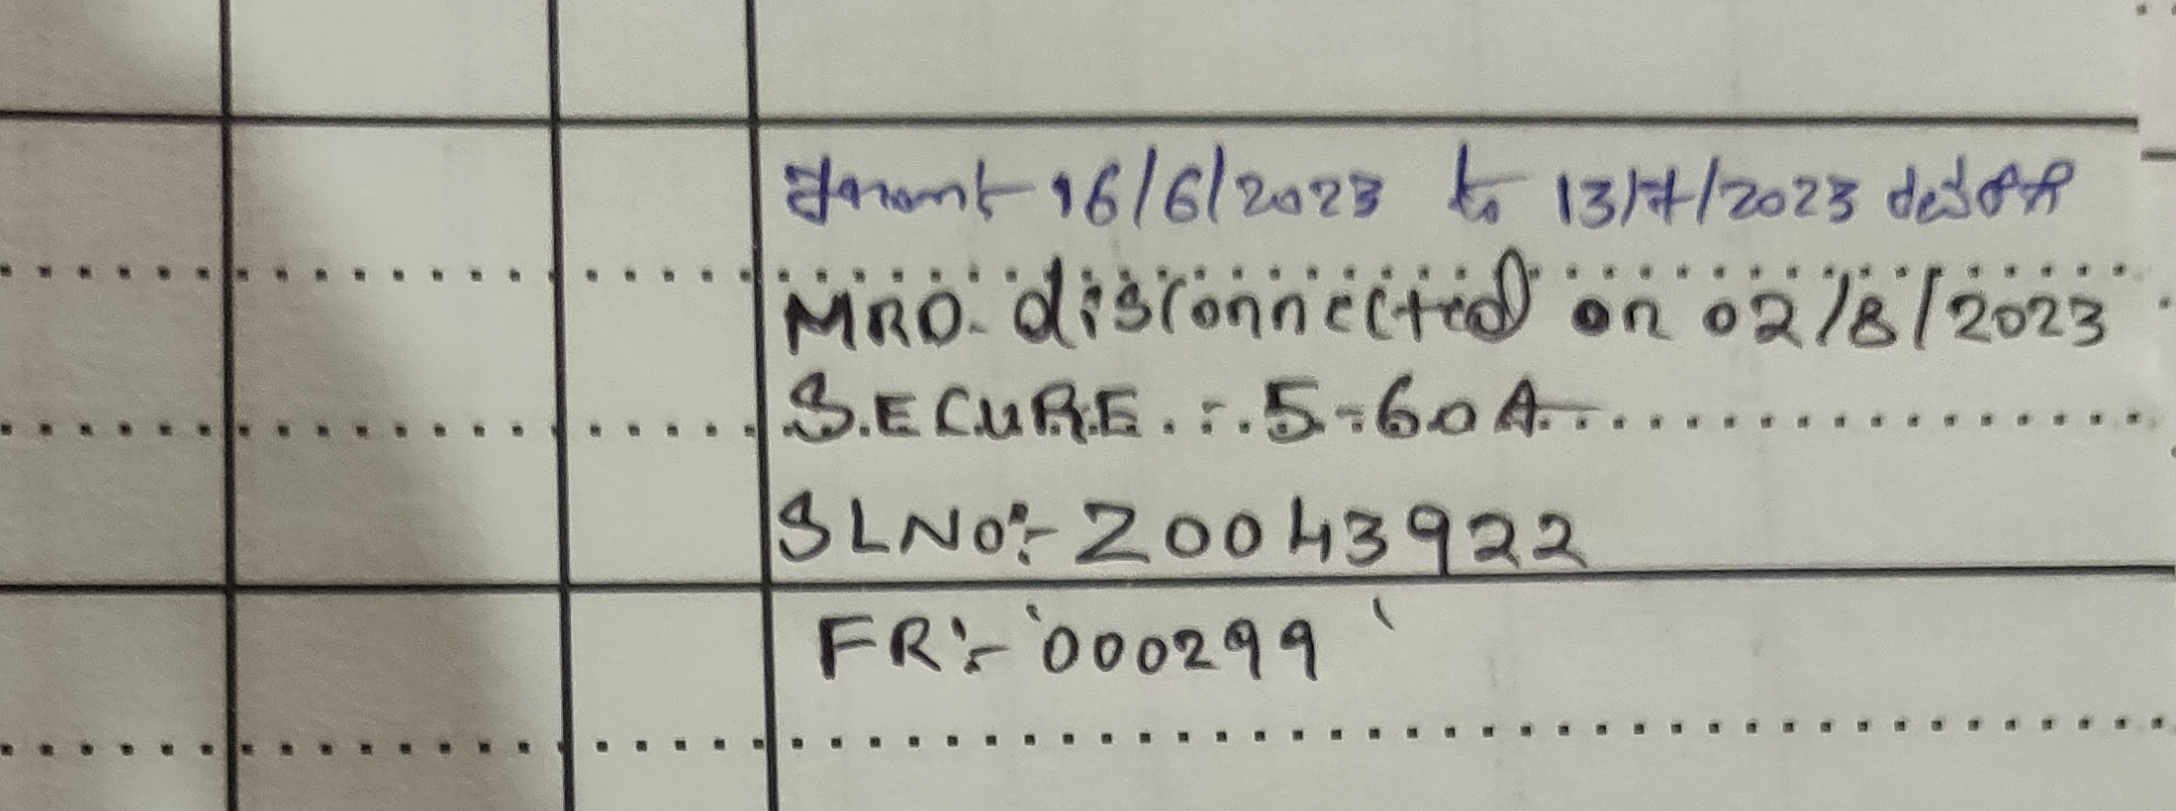 16/6/2023 to 13/7/2023
MRD. disconnected on 02/8/2023
SECURE :- 5-60A
SLNo:- Z0043922
FR:- '000299'